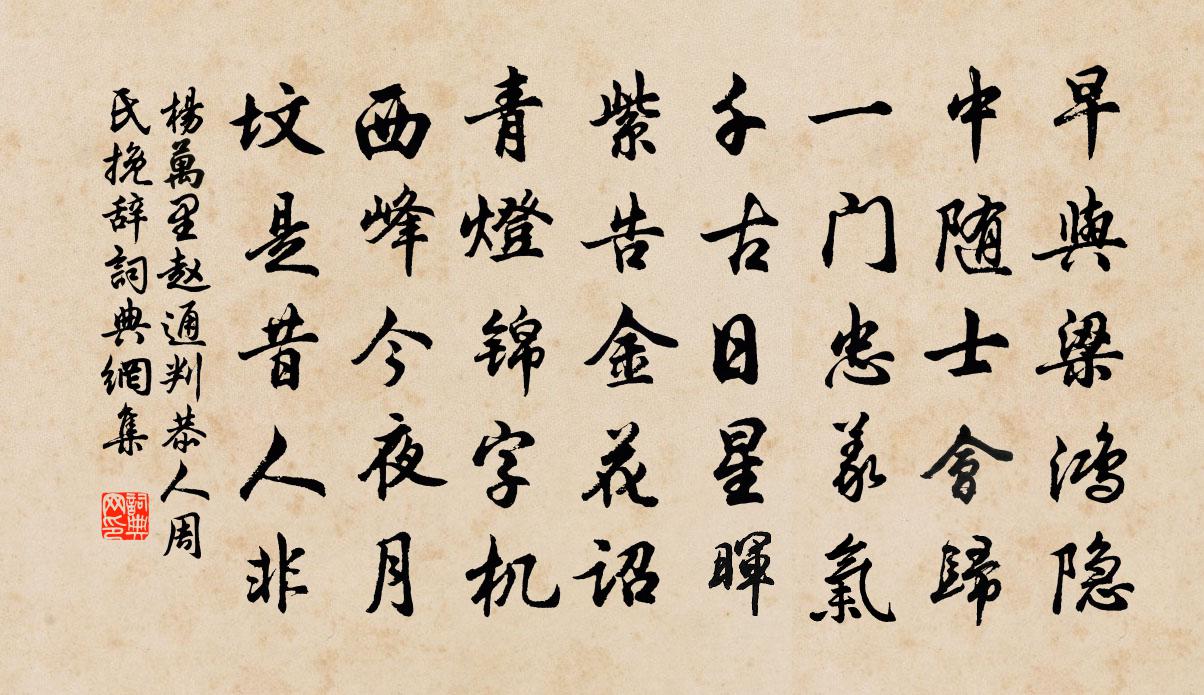 早與梁鸿隐
中随士會歸
一门忠义氣
千古日星暉
紫告金花诏
青燈锦字机
西峰今夜月
坟是昔人非
楊萬里赵通判恭人周
氏挽辞詞典網集
詞典网印